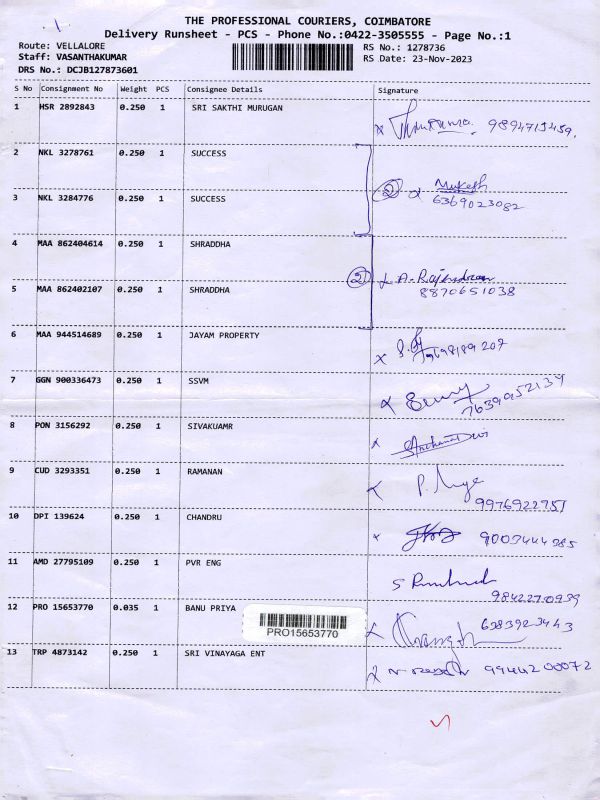 THE PROFESSIONAL COURIERS, COIMBATORE
Delivery Runsheet - PCS - Phone No.:0422-3505555 - Page No.:1
Route: VELLALORE
RS No.: 1278736
Staff: VASANTHAKUMAR
RS Date: 23-Nov-2023
DRS No.: DCJB127873601
S No Consignment No Weight PCS Consignee Details Signature
1 HSR 2892843 0.250 1 SRI SAKTHI MURUGAN
2 NKL 3278761 0.250 1 SUCCESS
② Mukesh
3 NKL 3284776 0.250 1 SUCCESS 6369023082
4 MAA 862404614 0.250 1 SHRADDHA
② A. Rajendran
5 MAA 862402107 0.250 1 SHRADDHA 8870651038
6 MAA 944514689 0.250 1 JAYAM PROPERTY 9698189207
7 GGN 900336473 0.250 1 SSVM
8 PON 3156292 0.250 1 SIVAKUAMR
9 CUD 3293351 0.250 1 RAMANAN
9976922751
10 DPI 139624 0.250 1 CHANDRU 9003444285
11 AMD 27795109 0.250 1 PVR ENG
9842270939
12 PRO 15653770 0.035 1 BANU PRIYA
PRO15653770
13 TRP 4873142 0.250 1 SRI VINAYAGA ENT 9944200072